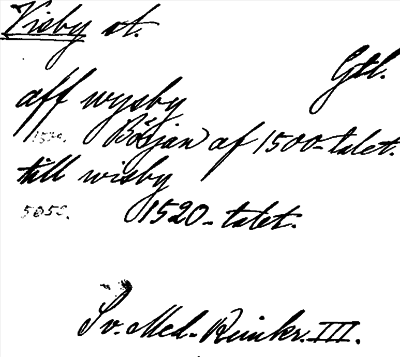 Visby st.
Gtl.
aff wysby
Början af 1500-talet.
till wisby
1520-talet.
Sv. Med. Rimkr. III.